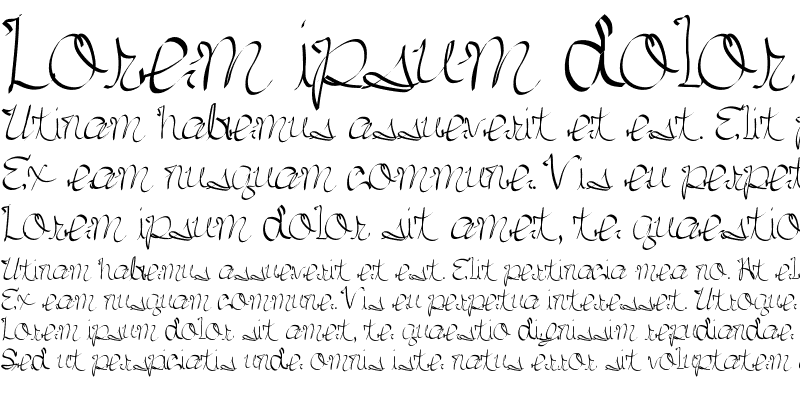 Lorem ipsum dolor
Utinam habemus assueverit et est. Elit
Ex eam nusquam commune. Vis eu perpet
Lorem ipsum dolor sit amet, te quaestio
Utinam habemus assueverit et est. Elit pertinacia mea no. At el
Ex eam nusquam commune. Vis eu perpetua interesset. Utroque
Lorem ipsum dolor sit amet, te quaestio dignissim repudiandae.
Sed ut perspiciatis unde omnis iste natus error sit voluptatem